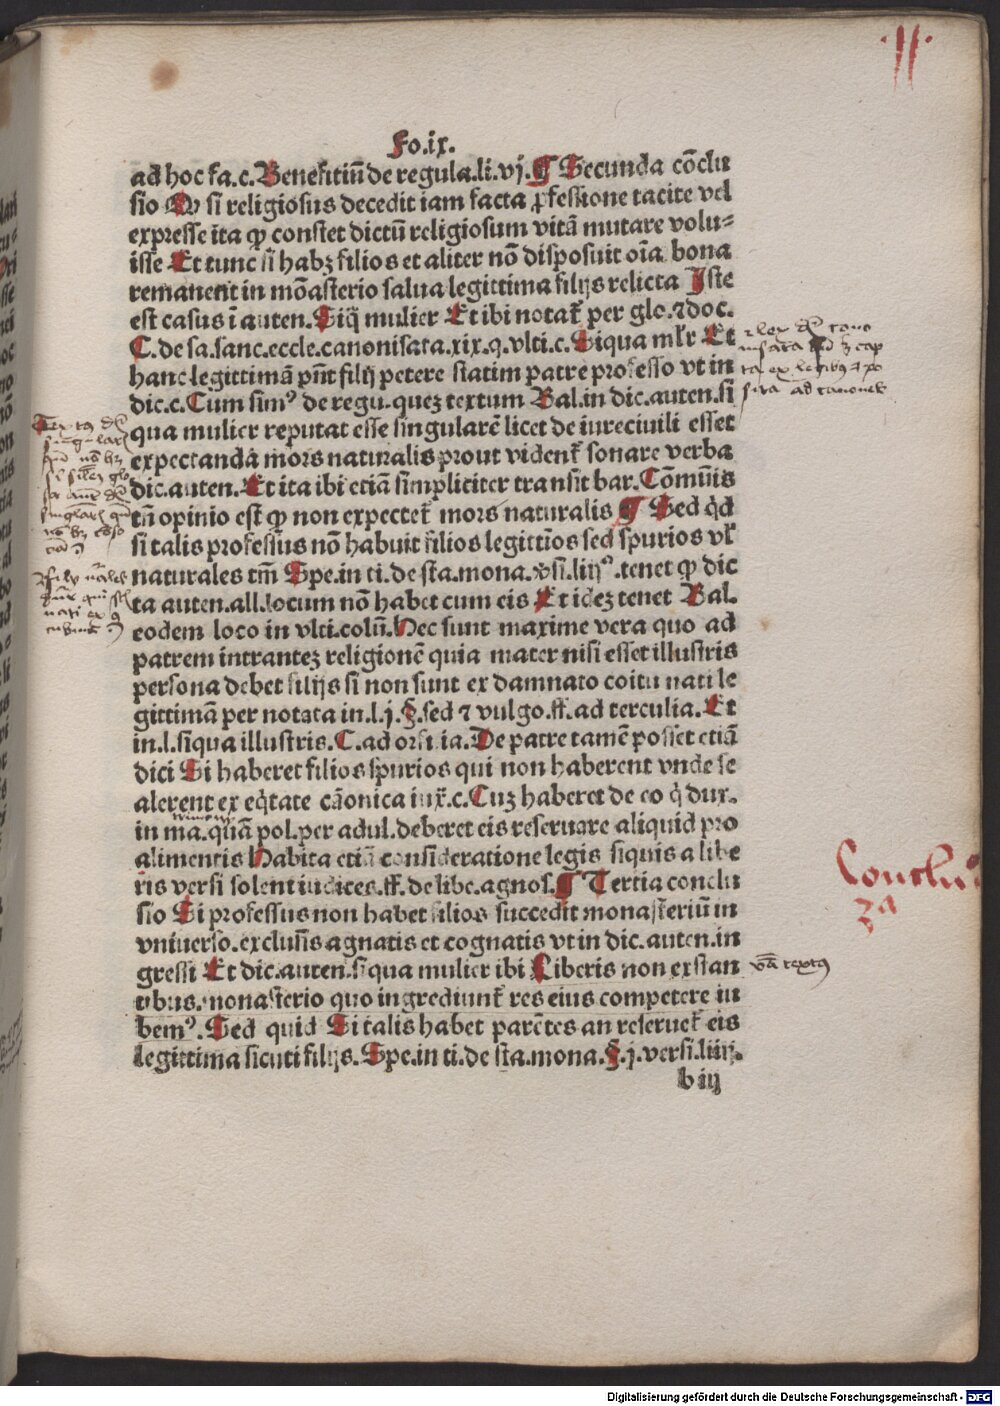 11
Fo.ix.
ad hoc fa.c.Benefitiū de regula.li.vj.¶ Secunda cōclu
sio Qꝫ si religiosus decedit iam facta ꝓfessione tacite vel
expresse ita ꝙ constet dictū religiosum vitā mutare volu⸗
isse Et tunc si habꝫ filios et aliter nō disposuit oīa bona
remanent in mōasterio salua legittima filijs relicta Iste
est casus ī auten.Siq̄ mulier Et ibi notat̄ per glo.⁊ doc.
C.de sa.sanc.eccle.canonisata.xix.q.vlti.c.Siqua ml̄r Et
hanc legittimā pn̄t filij petere statim patre professo vt in
dic.c.Cum simꝰ de regu.quez textum Bal.in dic.auten.si
qua mulier reputat esse singularē licet de iureciuili esset
expectanda mors naturalis prout vident̄ sonare verba
dic.auten.Et ita ibi etiā simpliciter transit bar.Cōmūis
tn̄ opinio est ꝙ non expectet̄ mors naturalis ¶ Sed qͥd
si talis professus nō habuit filios legittīos sed spurios vl̄
naturales tm̄ Spe.in ti.de sta.mona.ꝟsi.liijº.tenet ꝙ dic
ta auten.all.locum nō habet cum eis Et idez tenet Bal.
eodem loco in vlti.colū.Hec sunt maxime vera quo ad
patrem intrantez religionē quia mater nisi esset illustris
persona debet filijs si non sunt ex damnato coitu nati le
gittimā per notata in.l.j.§.sed ⁊ vulgo.ff.ad terculia.Et
in.l.siqua illustris.C.ad orfi.ia.De patre tamē posset etiā
dici Si haberet filios spurios qui non haberent vnde se
alerent ex eq̄tate cāonica iux̄.c.Cuz haberet de eo q̇ dux.
in ma.quā pol.per adul.deberet eis reseruare aliquid pro
alimentis Habita etiā consideratione legis siquis a libe
ris versi solent iudices.ff.de libe.agnos.¶ Tertia conclu
sio Si professus non habet filios succedit monasteriū in
vniuerso.exclusis agnatis et cognatis vt in dic.auten.in
gressi Et dic.auten.siqua mulier ibi Liberis non exstan
tibus.monasterio quo ingrediunt̄ res eius competere iu
bemꝰ.Sed quid Si talis habet parētes an reseruet̄ eis
legittima sicuti filijs.Spe.in ti.de sta.mona.§.j.versi.liiij.
b iij
Conclu
3ª
Digitalisierung gefördert durch die Deutsche Forschungsgemeinschaft - DFG